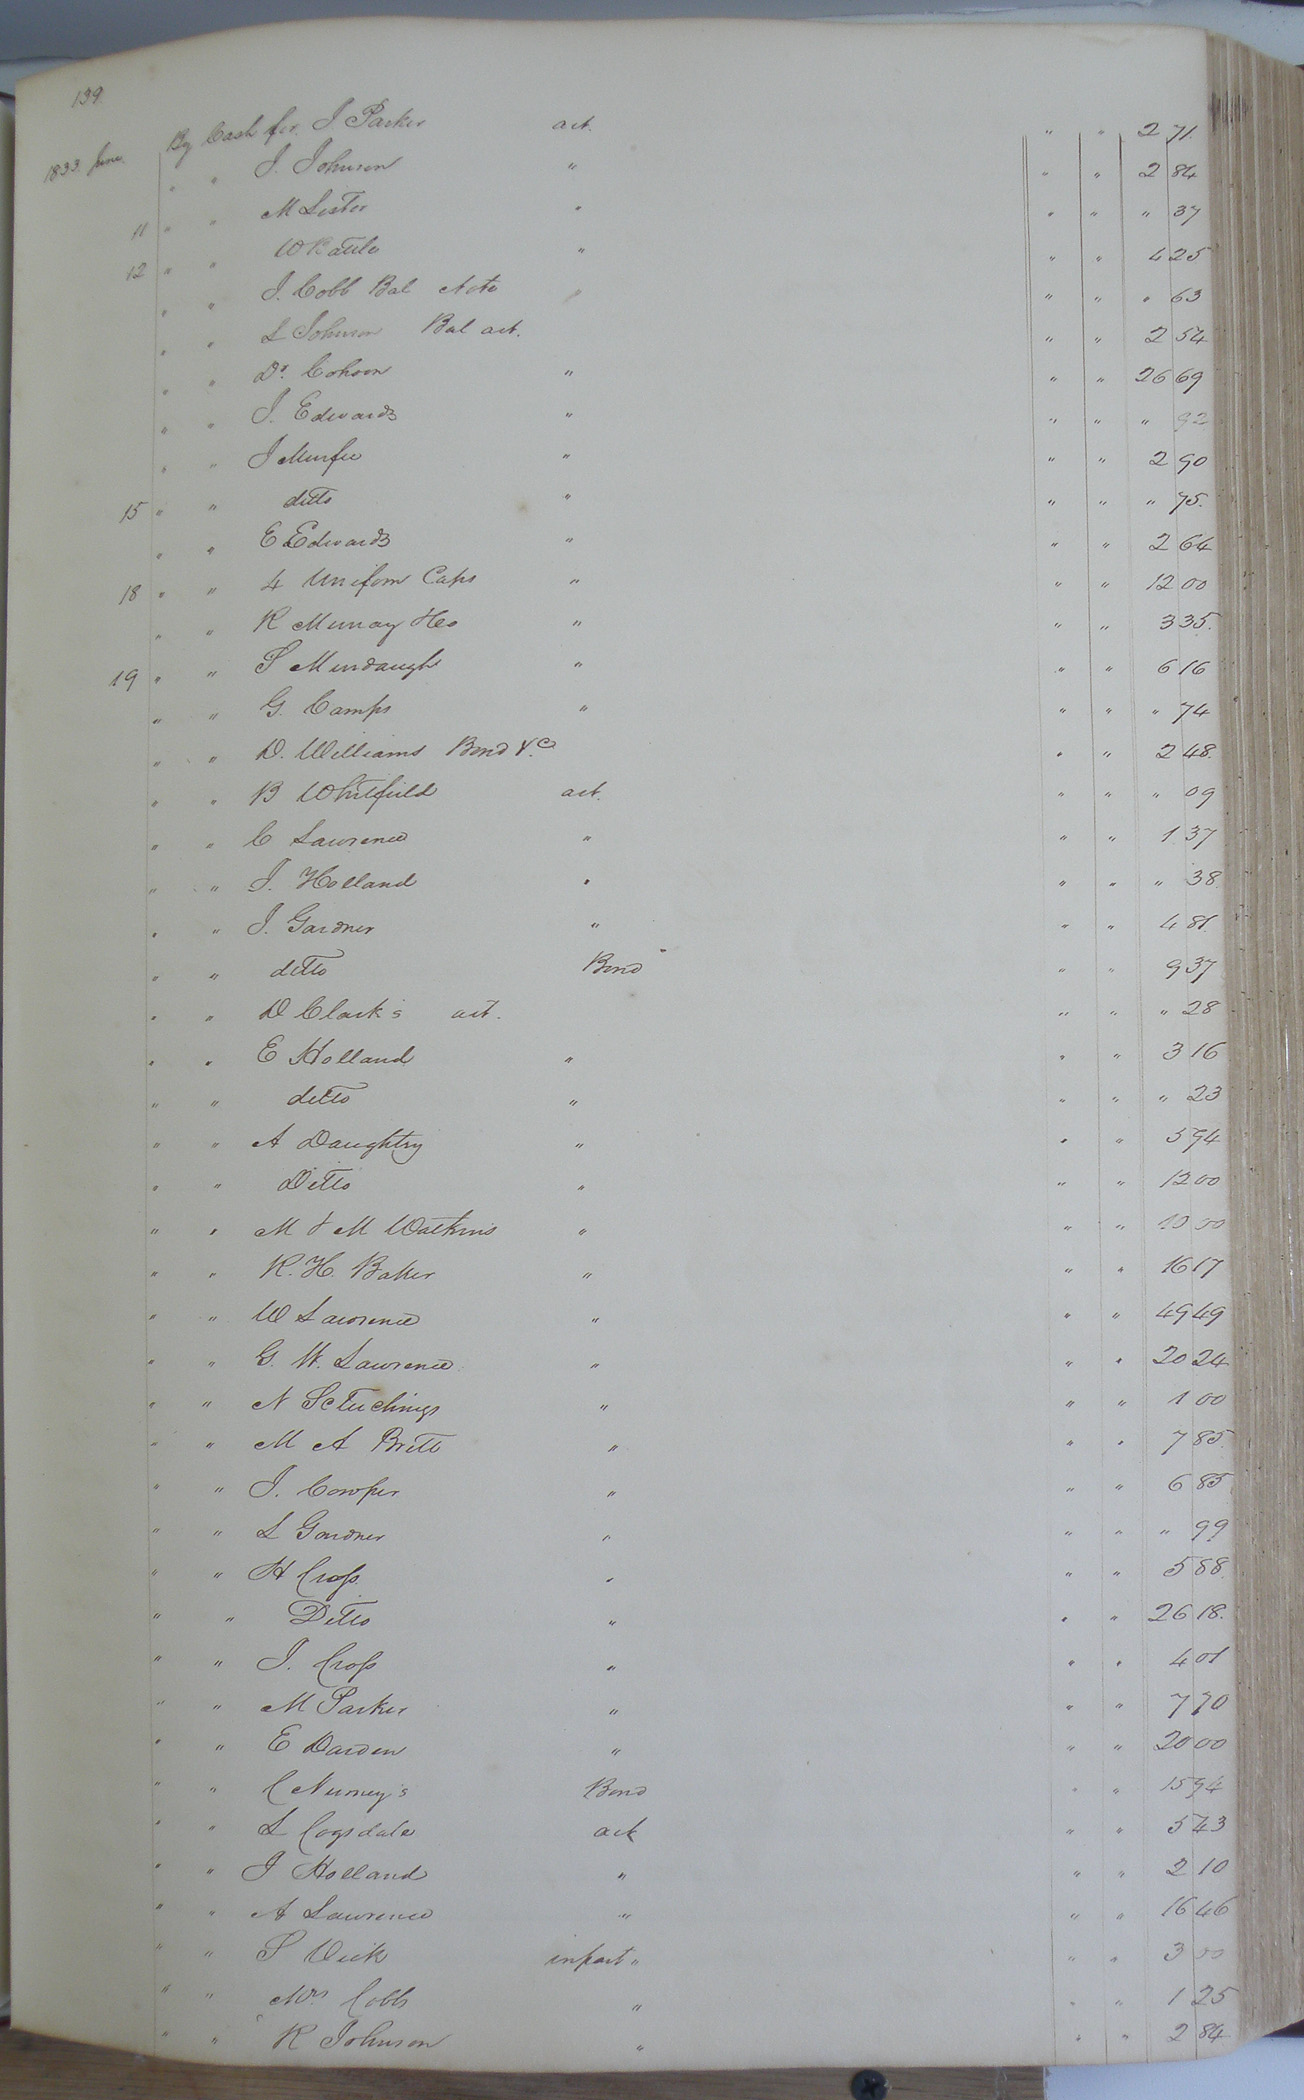 139
1833 June By Cash for J Parker act. " " 2 71.
" " J. Johnson " " " 2 84
11 " " M Lister " " " " 37
12 " " W Rawls " " " 4 25
" " J. Cobb Bal Note " " " " 63
" " L Johnson Bal act. " " 2 54
" " Dr. Cohoon " " " 26 69
" " J. Edwards " " " " 92
" " J Murfee " " " 2 90
15 " " ditto " " " " 75.
" " E Edwards " " " 2 64
18 " " 4 Uniform Caps " " " 12 00
" " R Murray Hes " " " 3 35.
19 " " S Murdaugh " " " 6 16
" " G. Camps " " " " 74
" " D. Williams Bond &c " " 2 48.
" " B Whitfield act. " " " 09
" " C Lawrence " " " 1 37
" " J. Holland " " " " 38.
" " J. Gardner " " " 4 81.
" " ditto Bond " " " 9 37
" " D Clark's act. " " " 28
" " E Holland " " " 3 16
" " ditto " " " " 23
" " A Daughtry " " " 5 94
" " Ditto " " " 12 00
" " M & M Watkins " " " 10 00
" " R. H. Baker " " " 16 17
" " W Lawrence " " " 49 49
" " G. W. Lawrence " " " 20 24
" " N " " " 1 00
" " M A Britt " " " 7 85.
" " J. Cowper " " " 6 85
" " L Gardner " " " " 99
" " H Cross " " " 5 88.
" " Ditto " " " 26 18.
" " J. Cross " " " 4 01
" " M Parker " " " 7 70
" " E Darden " " " 20 00
" " C Nurney's Bond " " 15 94
" " L Cogsdale act " " 5 43
" " J Holland " " " 2 10
" " A Lawrence " " " 16 46
" " S in part " " " 3 00
" " Mrs Cobb " " " 1 25
" " R Johnson " " " 2 84